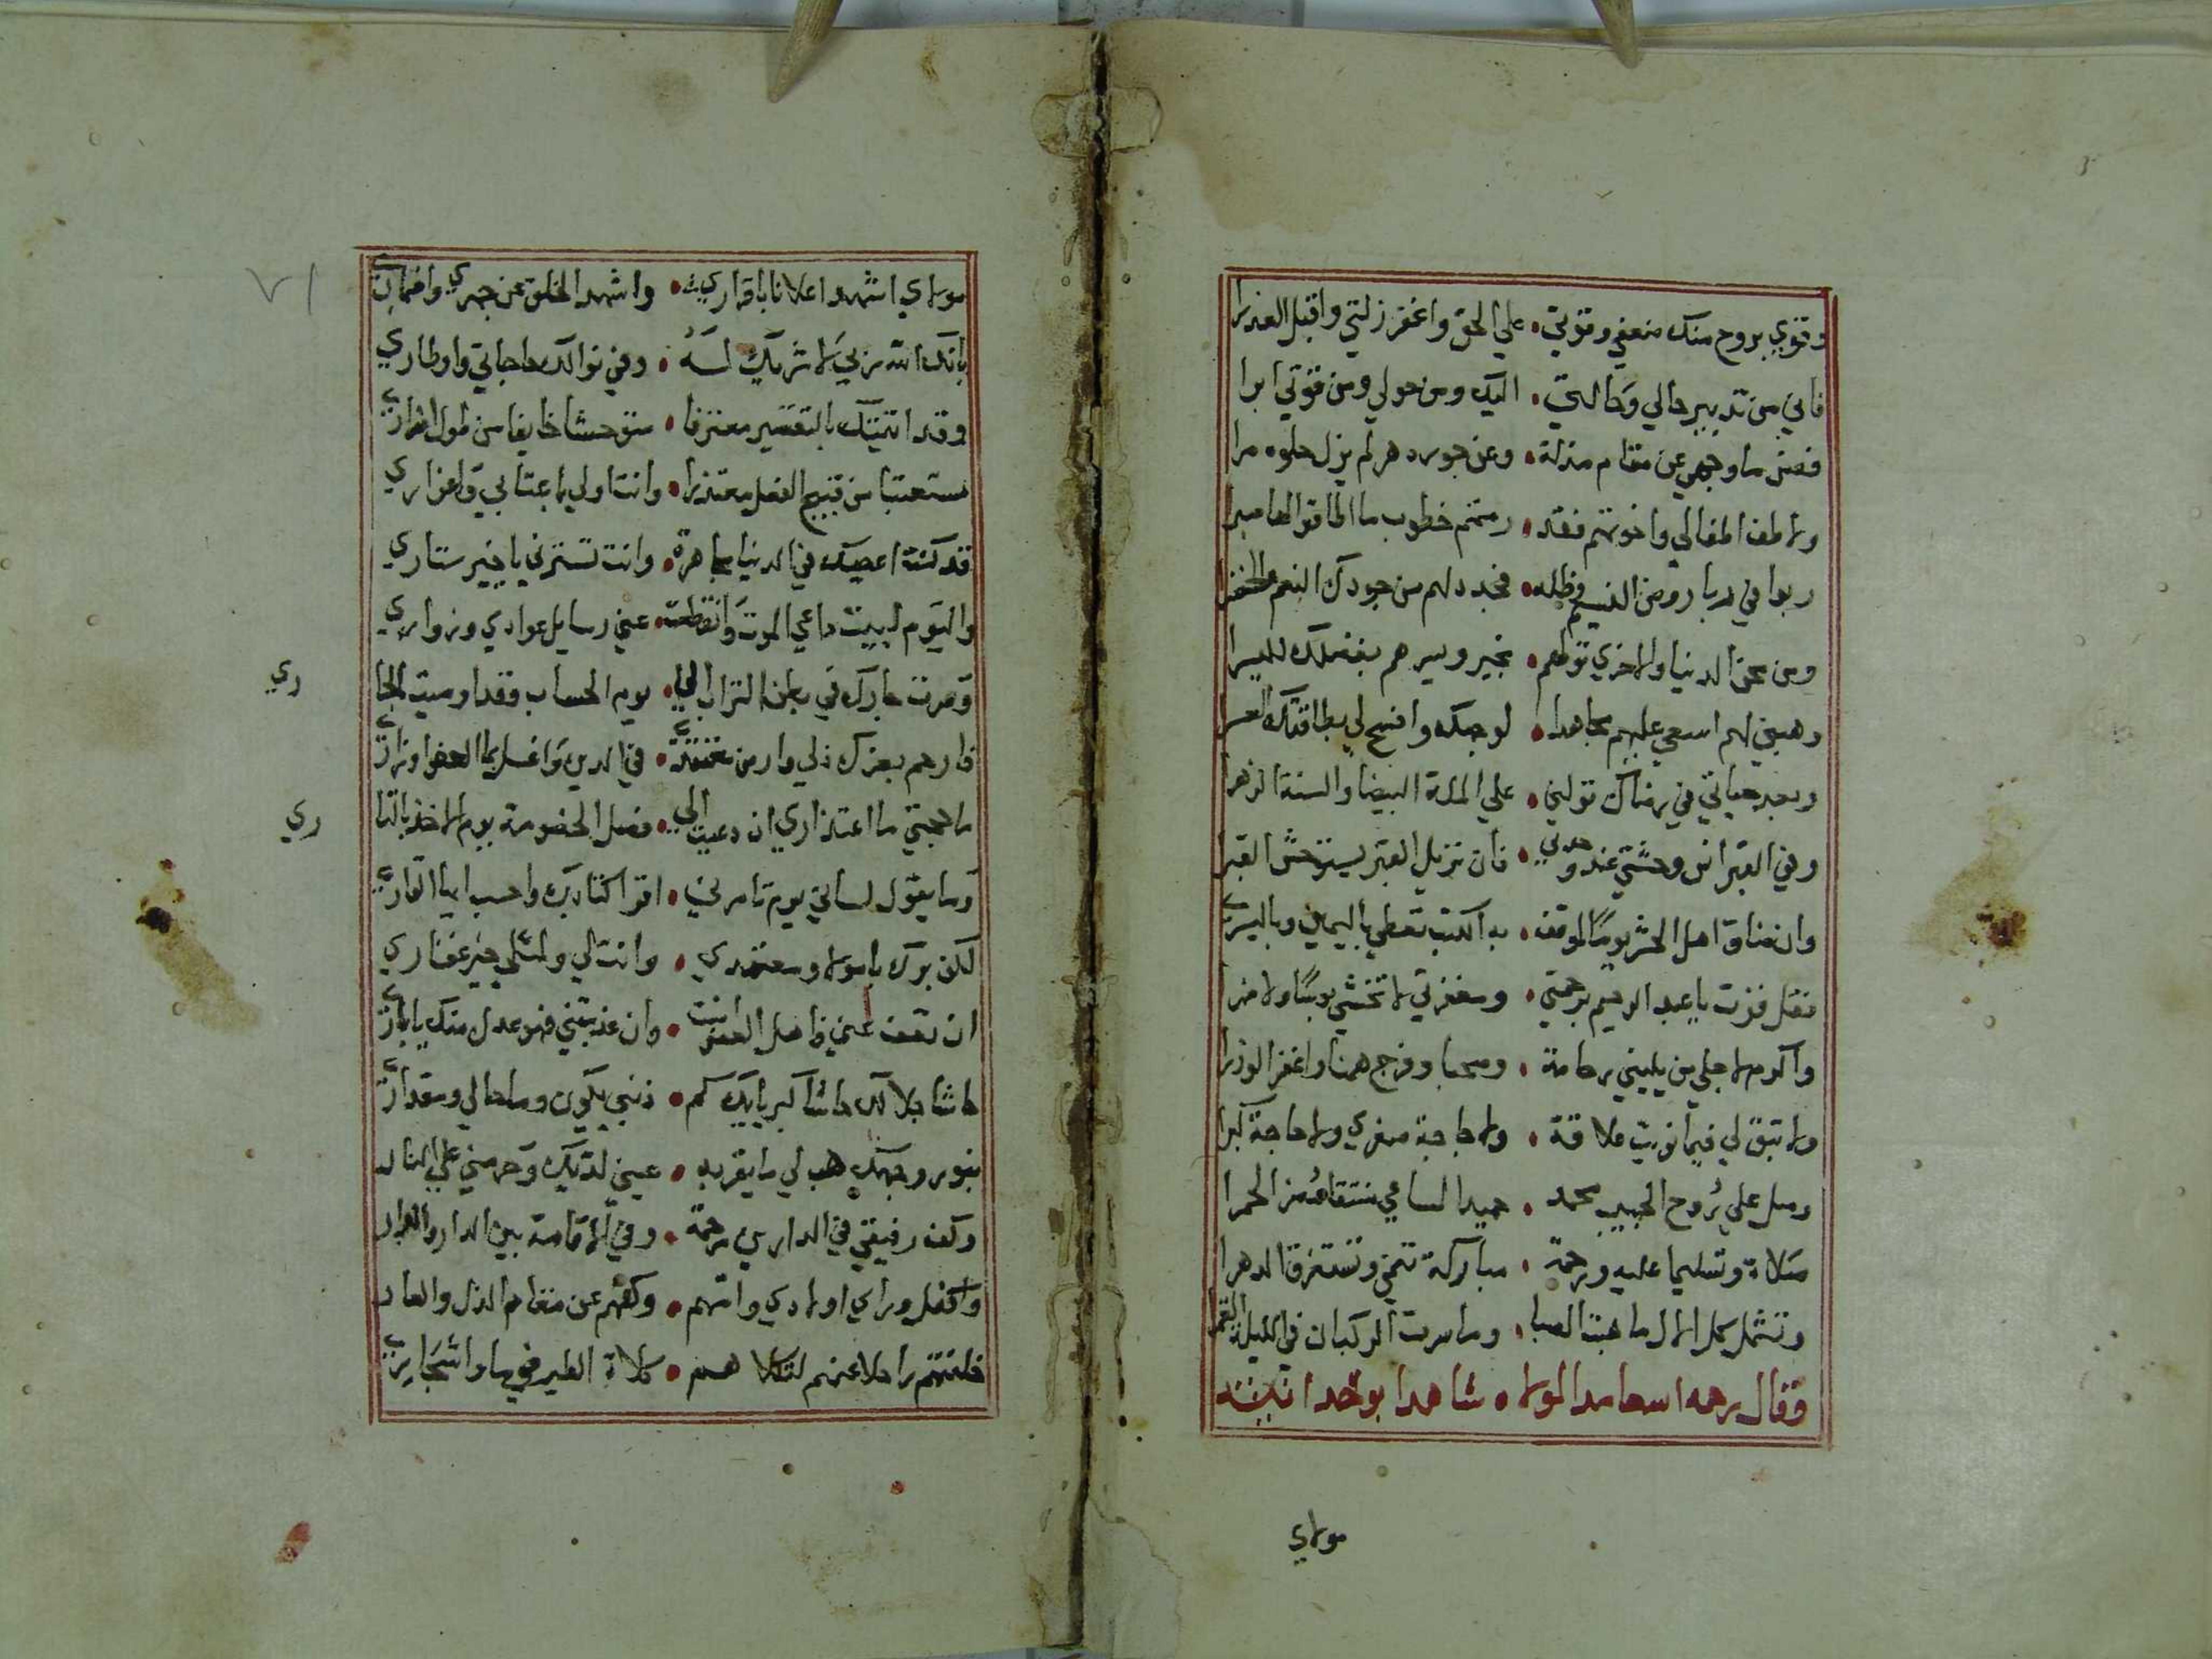 وقوي بروح منك ضعفي وقوتي • علي الحق واغفر زلتي واقبل العذرا
فاني من تدبير حالي وحالتي • اليك ومن حولي ومن قوتي ابرا
فصن ما وجهي عن مقام مذلة • وعن جور دهر لم يزل حلوه مرا
ولاطف اطفالي واخوتهم فقد • رمتهم خطوب ما اطاقوا لها صبرا
ربوا في ربا روض النعيم وظله • فجدد لهم من جودك النعم الخضرا
ومن محن الدنيا والاخري تولهم • بخير ويسرهم بفضلك لليسرا
وهبني لهم اسعي عليهم مجاهدا • لوجهك وافتح لي بطاقتك العسرا
وبعد حياتي في رضاك تولني • علي الملة البيضا والسنة الزهرا
وفي القبر انس وحشتي عند وحدتي • فان نزيل القبر يستوحش القبرا
وان ضاق اهل الحشر يوما لموقف • به الكتب تعطي باليمين وباليسري
فقل فزت يا عبد الرحيم برحمتي • ومغفرتي لا تخشي بوسا ولا ضرا
واكرم لاجلي من يليني رحامة • وصحبا وفرج همنا واغفر الوزرا
ولا تبق لي فيما نويت علاقة • ولا حاجة صغري ولا حاجة كبرا
وصل علي روح الحبيب محمد • حميد المساعي منتقا مضر الحمرا
صلاة وتسليما عليه ورحمة • مباركة تنمي وتستغرق الدهرا
وتشمل كل الال ما هبت الصبا • وما سرت الركبان في الليلة القمرا
وقال رحمه اسه حامدا لمولاه شاهدا بوحدانيته
مولاي
٧١
مولاي اشهد اعلانا باقراري • واشهد الخلق عن جهري واضماري
بانك الله ربي لا شريك له • وفي نوالك حاجاتي واوطاري
وقد اتيتك بالتقصير معترفا • مستوحشا خايفا من طول
مستعتبا من قبيح الفعل معتذرا • وانت اولي باعتابي واعذاري
قد كنت اعصيك في الدنيا مجاهرة • وانت تسترني يا خير ستاري
واليوم لبيت داعي الموت وانقطعت • عني رسايل عوادي وزواري
وصرت جارك في بطن التراب الي • يوم الحساب وقد اوصيت الجا
ري
فارحم بعزك ذلي وارض عني • في الدين واغسل بما العفو اوزاري
ما حجتي ما اعتذاري ان دعيت الي • فصل الخصومة يوم الاخذ بالثا
ري
وما يقول لساني يوم تامرني • اقرا كتابك واحسب ايها القاري
لكن برك يا مولا ومعتمدي • وانت لي ولمثلي خير غفاري
ان تعف عني فاهل العفو انت • وان عذبتني فهو عدل منك يا باري
حاشا جلالك حاشا كبريايك كم • ذنبي يكون وما حالي ومقداري
بنور وجهك هب لي ما يقر به • عيني لديك وحرمني علي النار
وكن رفيقي في الدارين مرحمة • وفي الاقامة بين الدار والدار
واكفل وراي اولادي وامهم • وكفهم عن مقام الذل والعار
خلفتهم راحلا عنهم لتكلاهم • كلاة الطير في ما واشجاري